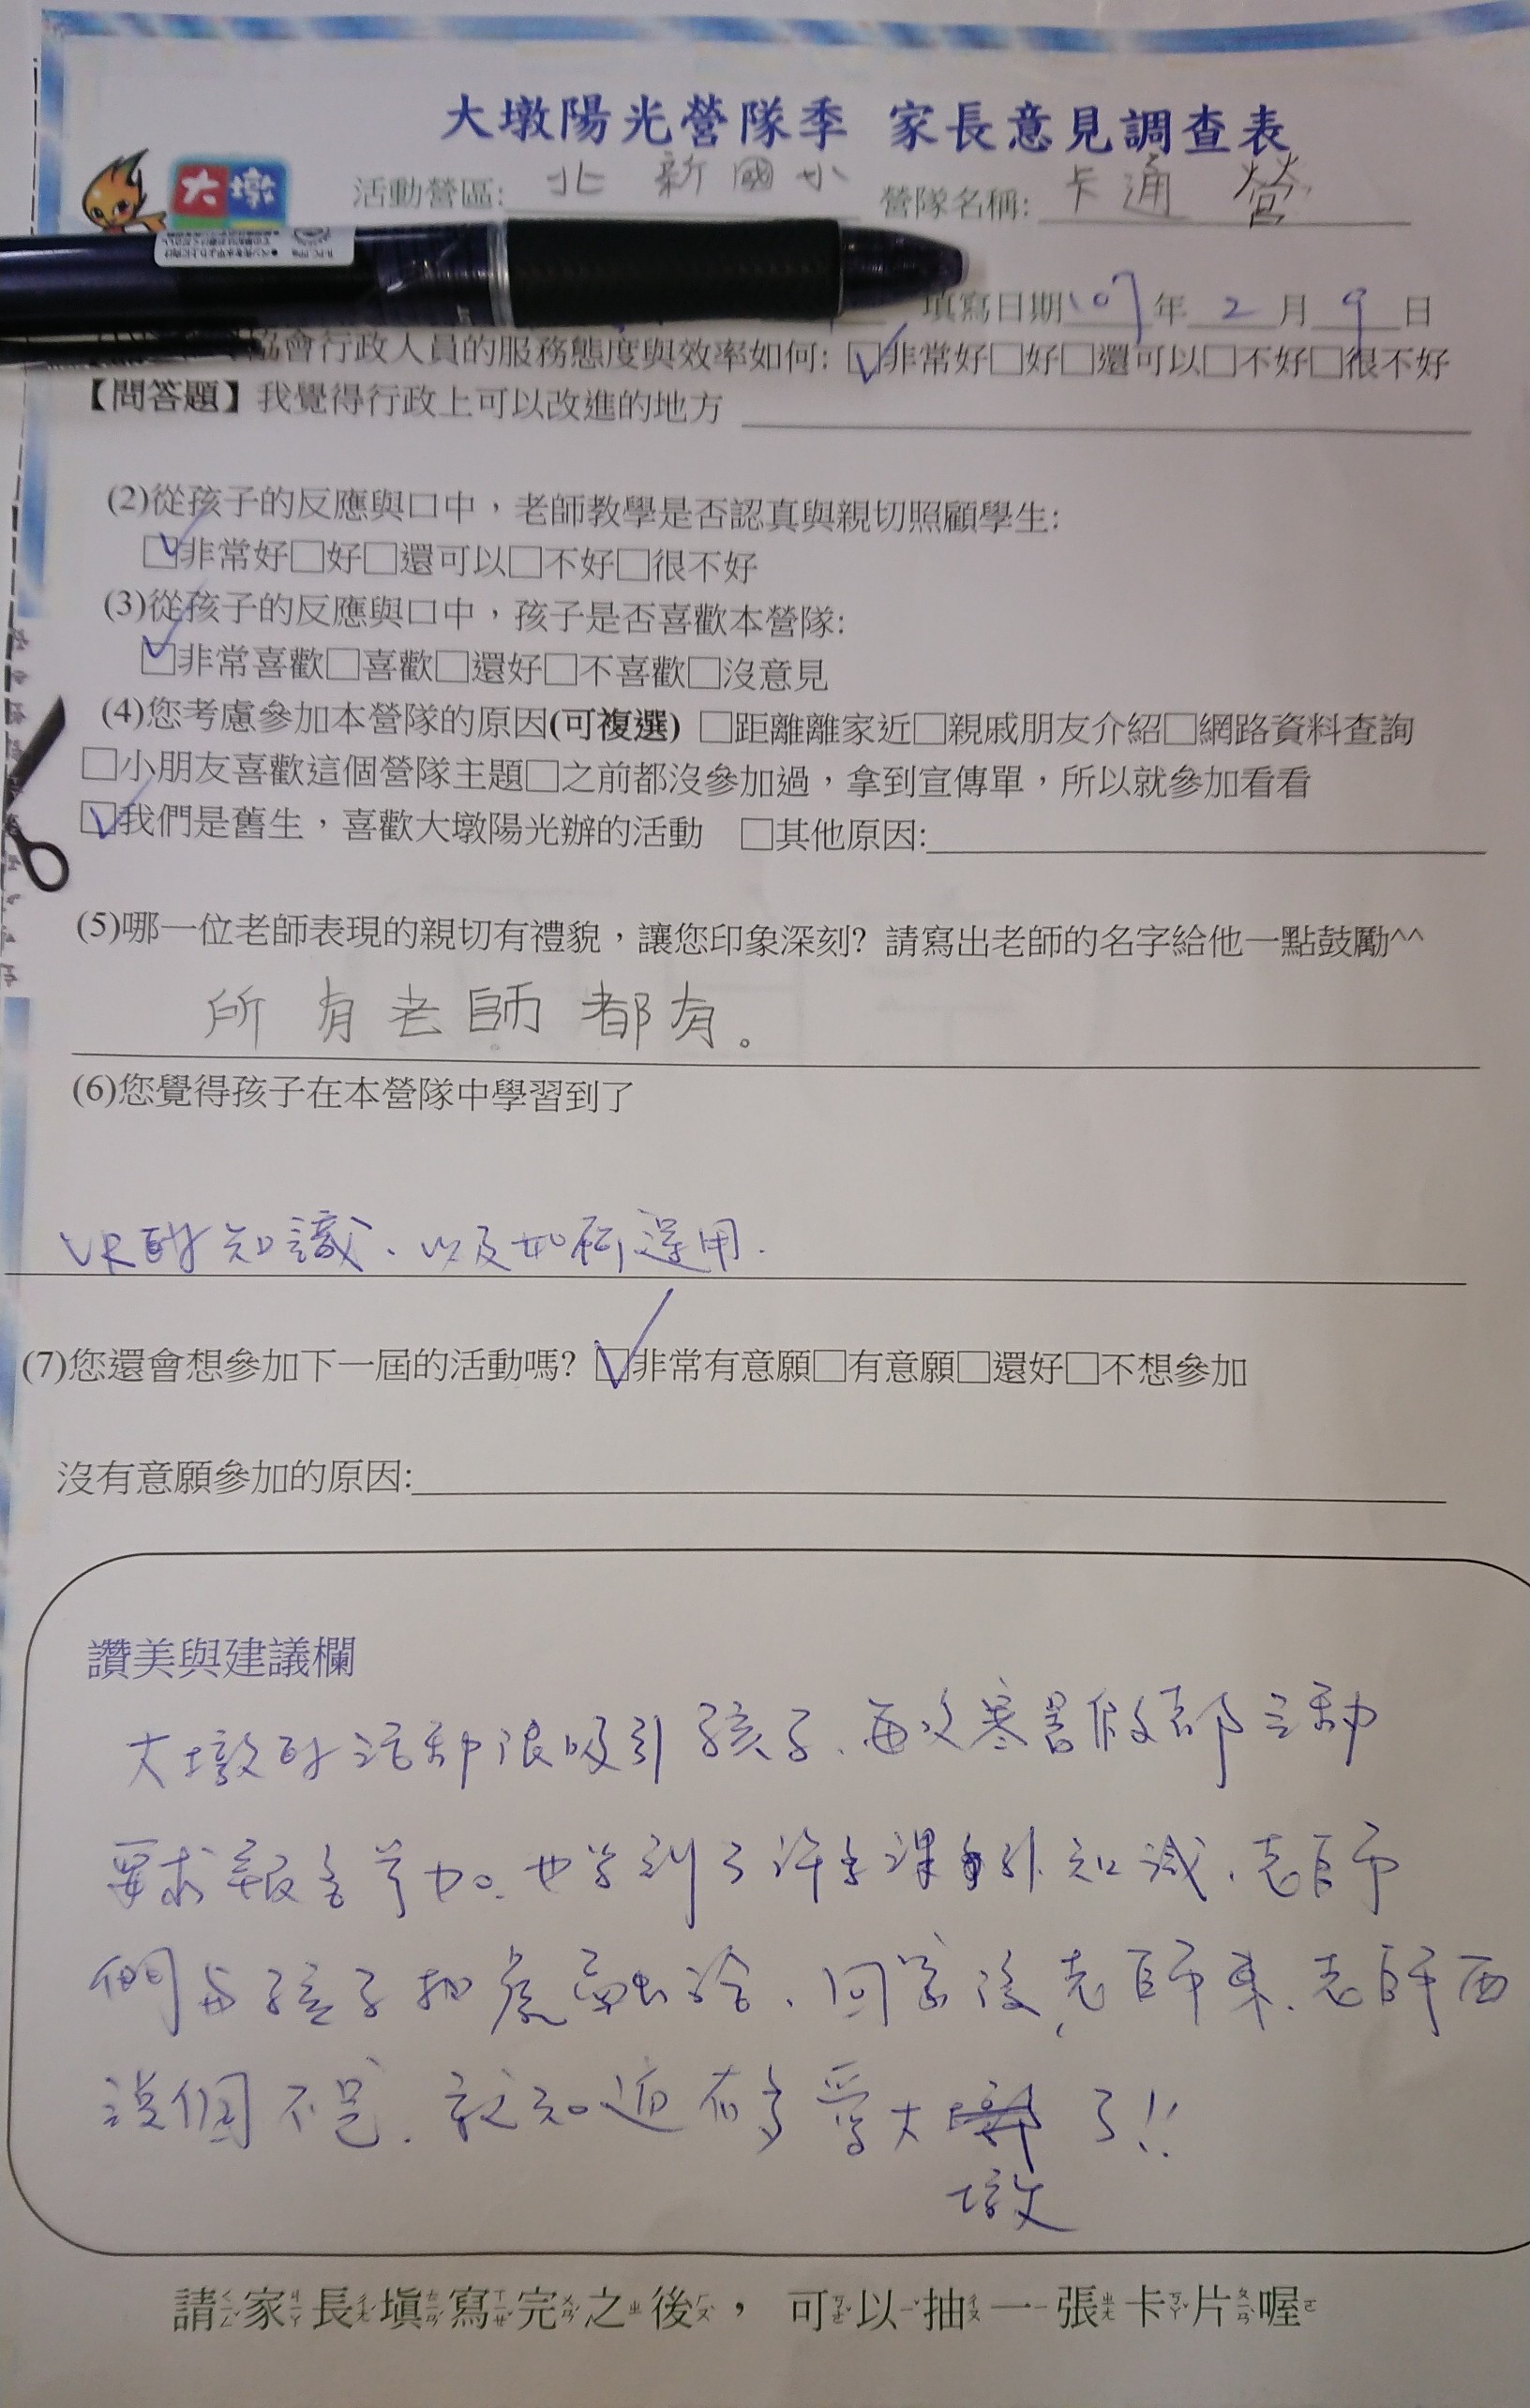 大墩陽光營隊季 家長意見調查表
大墩
活動營區: 北新國小 營隊名稱: 卡通營
填寫日期107年2月9日
協會行政人員的服務態度與效率如何: ☑非常好□好□還可以□不好□很不好
【問答題】我覺得行政上可以改進的地方
(2)從孩子的反應與口中，老師教學是否認真與親切照顧學生:
☑非常好□好□還可以□不好□很不好
(3)從孩子的反應與口中，孩子是否喜歡本營隊:
☑非常喜歡□喜歡□還好□不喜歡□沒意見
(4)您考慮參加本營隊的原因(可複選) □距離離家近□親戚朋友介紹□網路資料查詢
□小朋友喜歡這個營隊主題□之前都沒參加過，拿到宣傳單，所以就參加看看
☑我們是舊生，喜歡大墩陽光辦的活動 □其他原因:
(5)哪一位老師表現的親切有禮貌，讓您印象深刻? 請寫出老師的名字給他一點鼓勵^^
所有老師都有。
(6)您覺得孩子在本營隊中學習到了
VR的知識、以及如何運用.
(7)您還會想參加下一屆的活動嗎? ☑非常有意願□有意願□還好□不想參加
沒有意願參加的原因:
讚美與建議欄
大墩的活動很吸引孩子、每次寒暑假都主動
要求報名參加。也学到了許多課外知識、老師
們与孩子相處融洽、回家後,老師東、老師西
說個不停、就知道有多愛大墩了!!
請家長填寫完之後，可以抽一張卡片喔